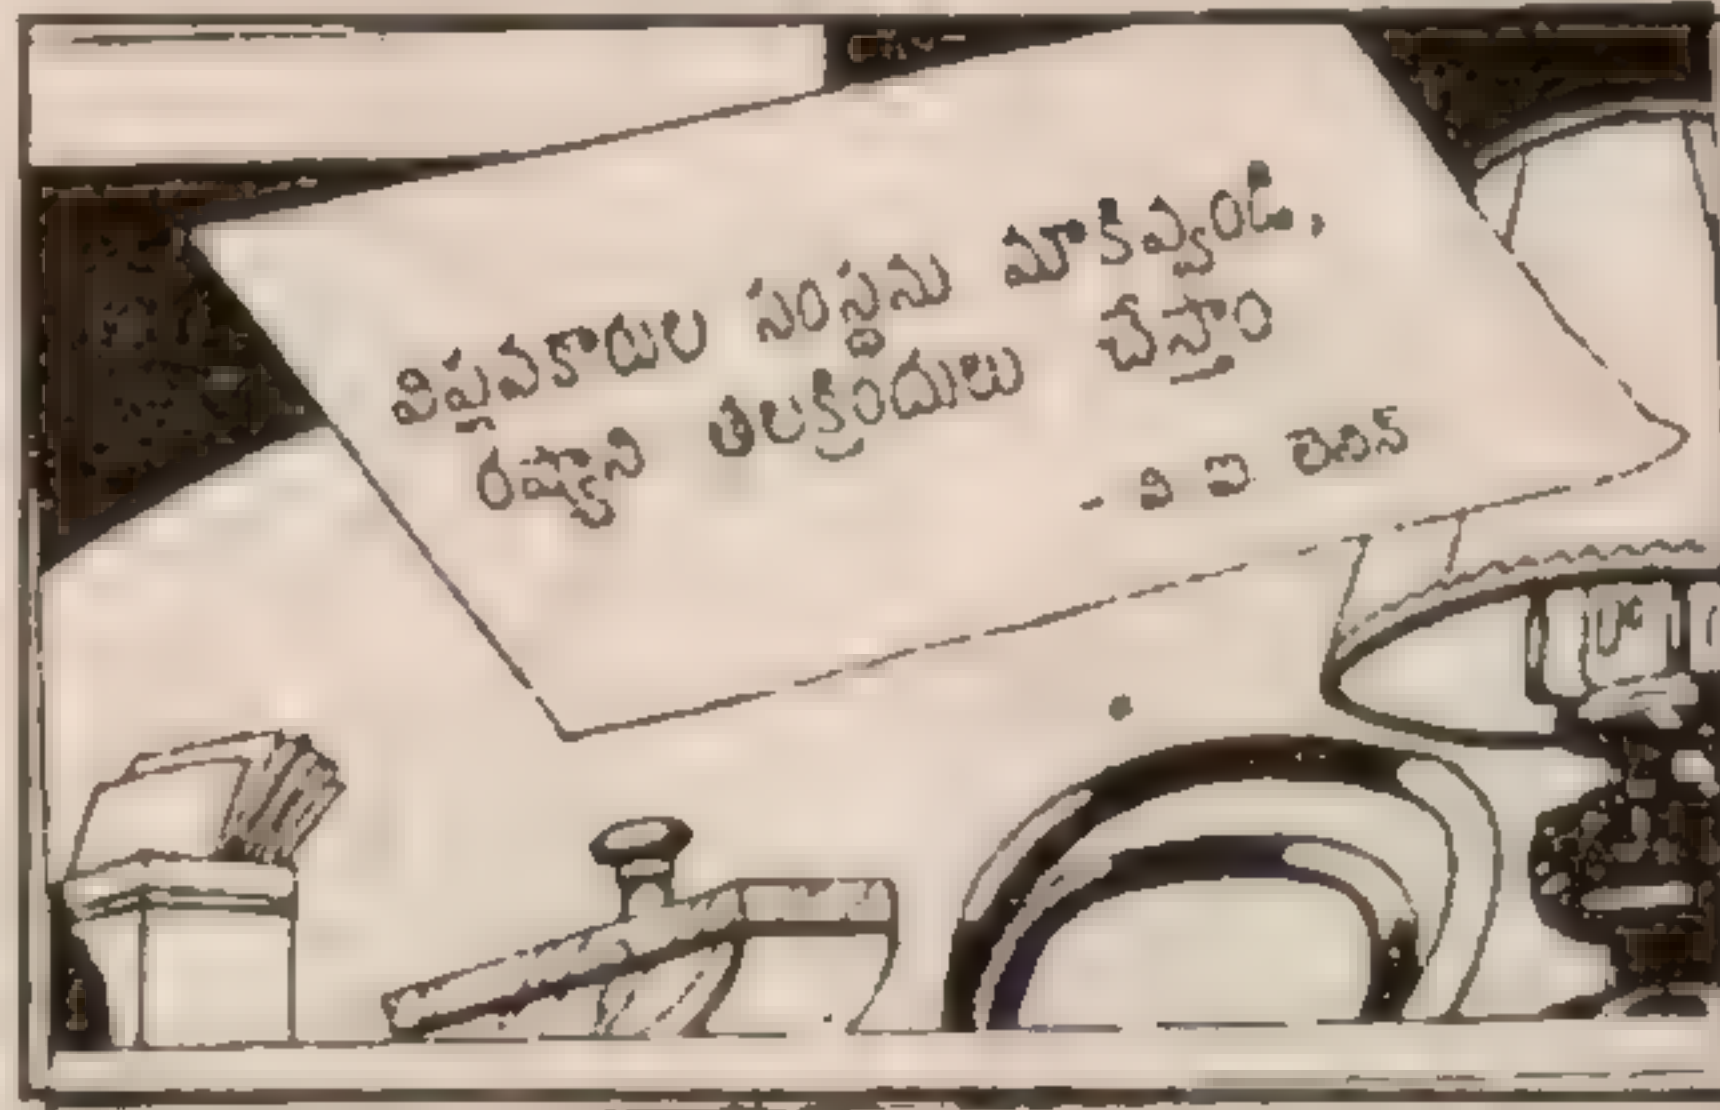 విప్లవకారుల సంస్థను మాకివ్వండి,
రష్యాని తలక్రిందులు చేస్తాం
- వి ఐ లెనిన్